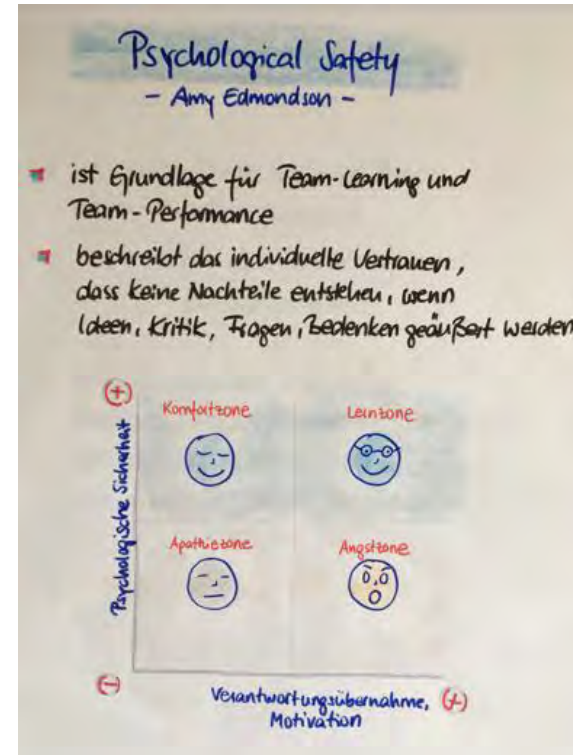 Psychological Safety
- Amy Edmondson -
ist Grundlage für Team-Learning und
Team-Performance
beschreibt das individuelle Vertrauen,
dass keine Nachteile entstehen, wenn
Ideen, Kritik, Fragen, Bedenken geäußert werden
(+)
Komfortzone
Lernzone
Psychologische Sicherheit
Apathiezone
Angstzone
(-)
Verantwortungsübernahme, (+)
Motivation